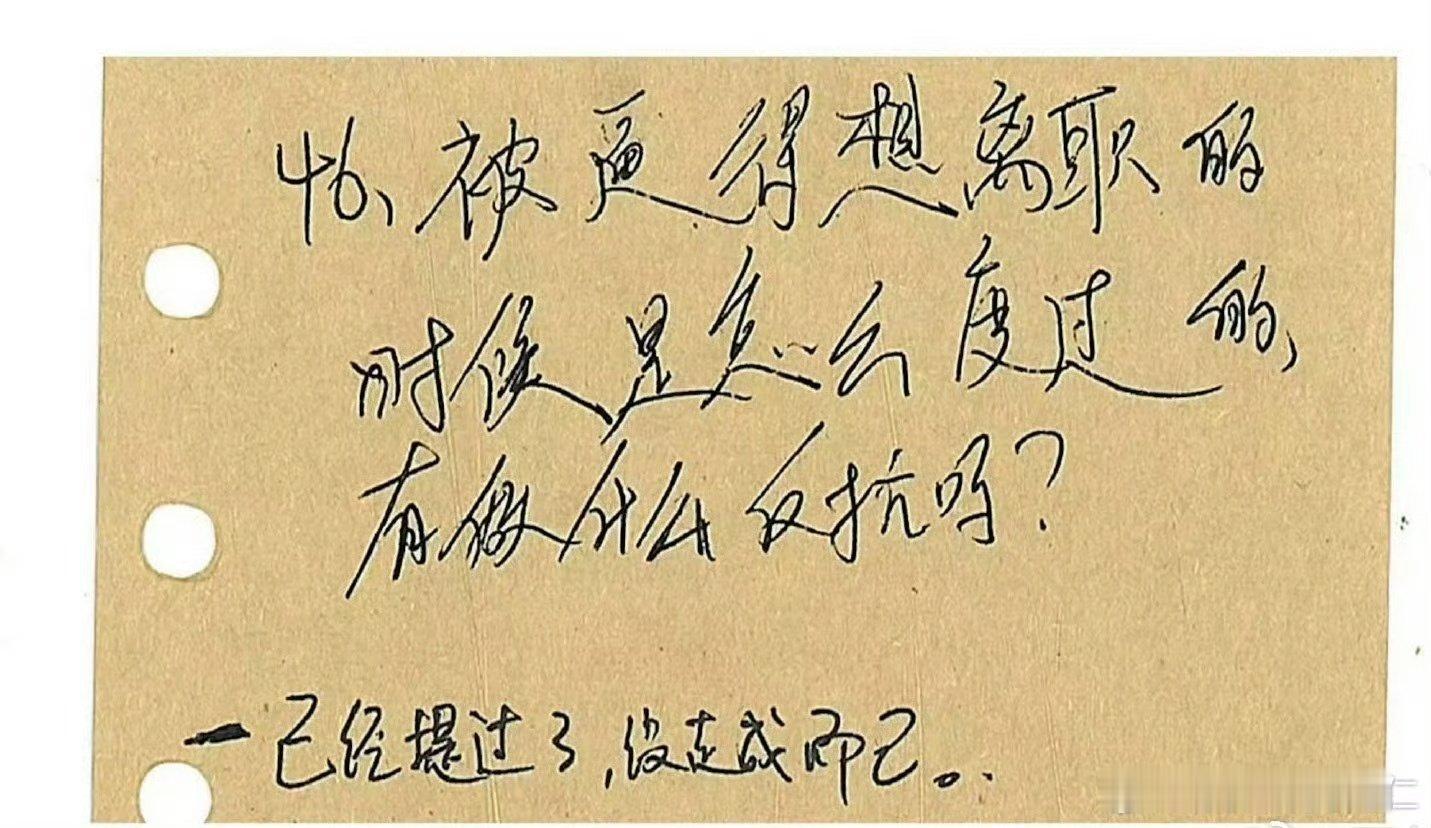 46、被逼得想离职的
时候是怎么度过的、
有做什么反抗吗？
一已经提过了,没走成而已。.